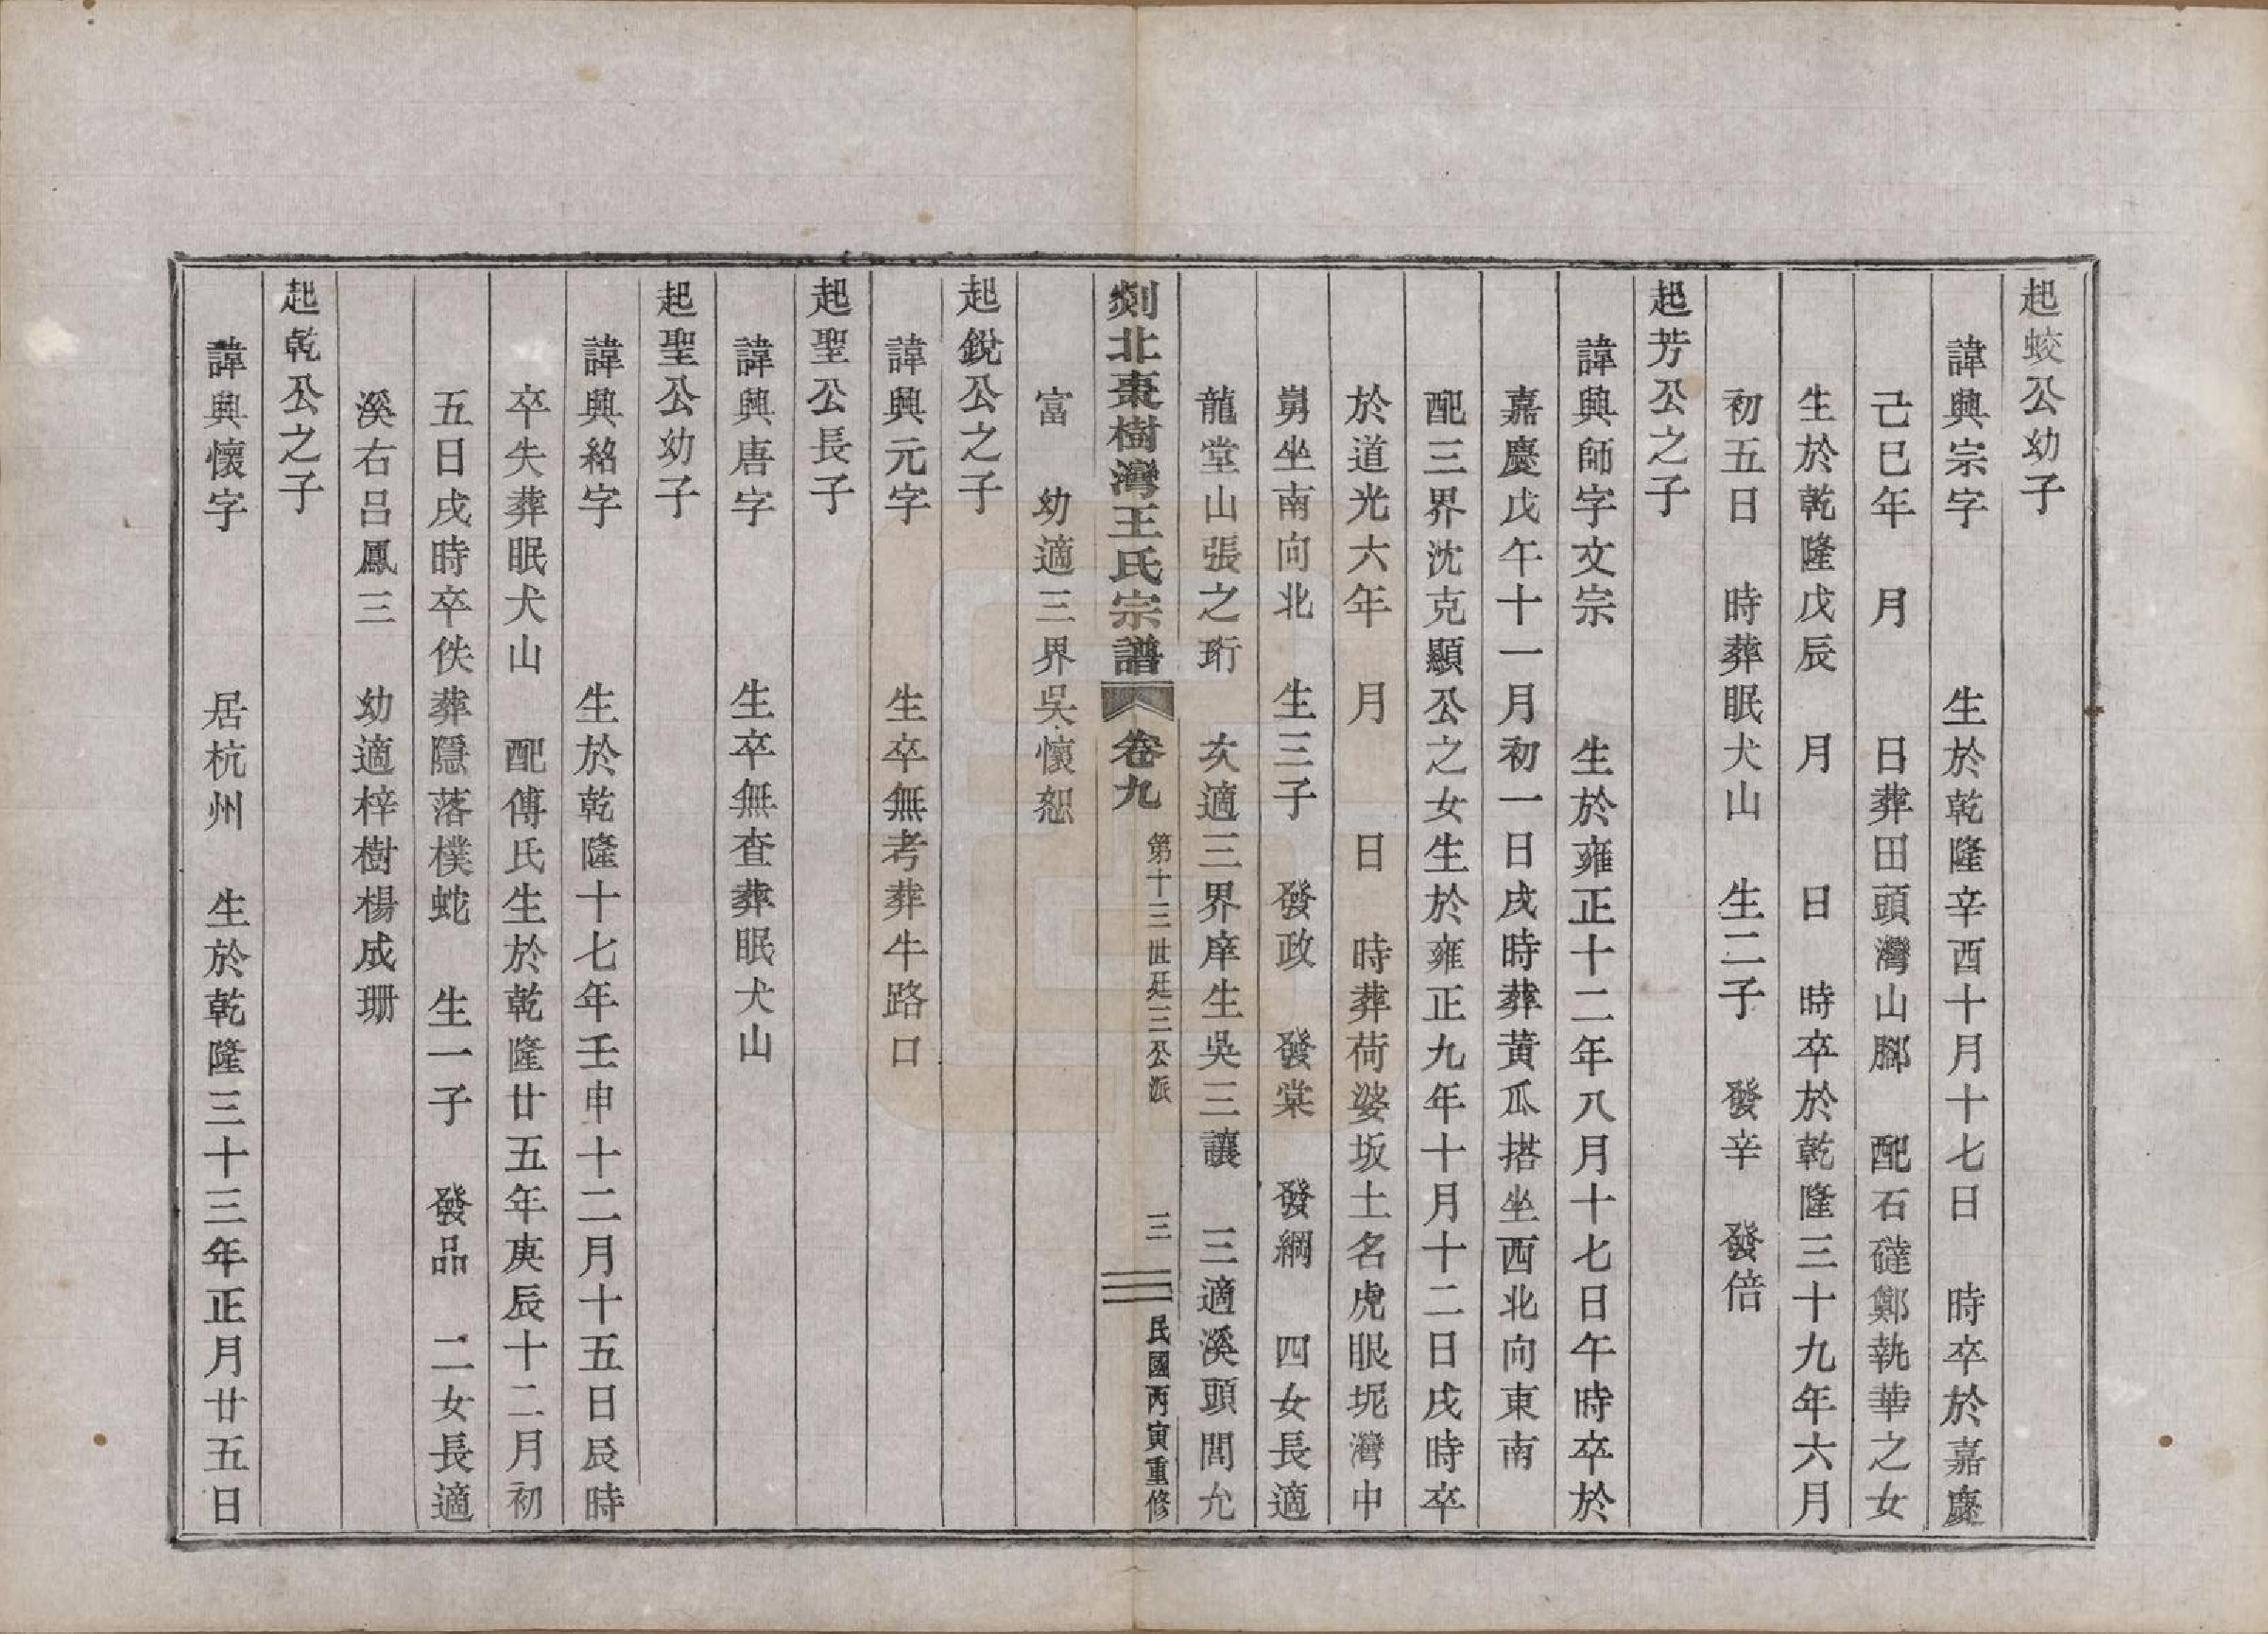 起蛟公幼子
諱興宗字　　　生於乾隆辛酉十月十七日　時卒於嘉慶
己巳年　月　　日葬田頭灣山腳　配石䃮鄭執華之女
生於乾隆戊辰　月　　日　時卒於乾隆三十九年六月
初五日　時葬眠犬山　生二子　發辛　　發倍
起芳公之子
諱興師字文宗　　生於雍正十二年八月十七日午時卒於
嘉慶戊午十一月初一日戌時葬黃瓜搭坐西北向東南
配三界沈克顯公之女生於雍正九年十月十二日戌時卒
於道光六年　月　　日　時葬荷婆坂土名虎眼坭灣中
舅坐南向北　生三子　發政　發棠　發綱　四女長適
龍堂山張之珩　次適三界庠生吳三讓　三適溪頭閭允
富　幼適三界吳懷恕
剡北棗樹灣王氏宗譜　卷九　第十三世廷三公派　三　民國丙寅重修
起銳公之子
諱興元字　　　生卒無考葬牛路口
起聖公長子
諱興唐字　　　生卒無查葬眠犬山
起聖公幼子
諱興紹字　　　生於乾隆十七年壬申十二月十五日辰時
卒失葬眠犬山　配傅氏生於乾隆廿五年庚辰十二月初
五日戌時卒佚葬隱落樸蛇　生一子　發品　二女長適
溪右呂鳳三　幼適梓樹楊成珊
起乾公之子
諱興懷字　　　居杭州　生於乾隆三十三年正月廿五日